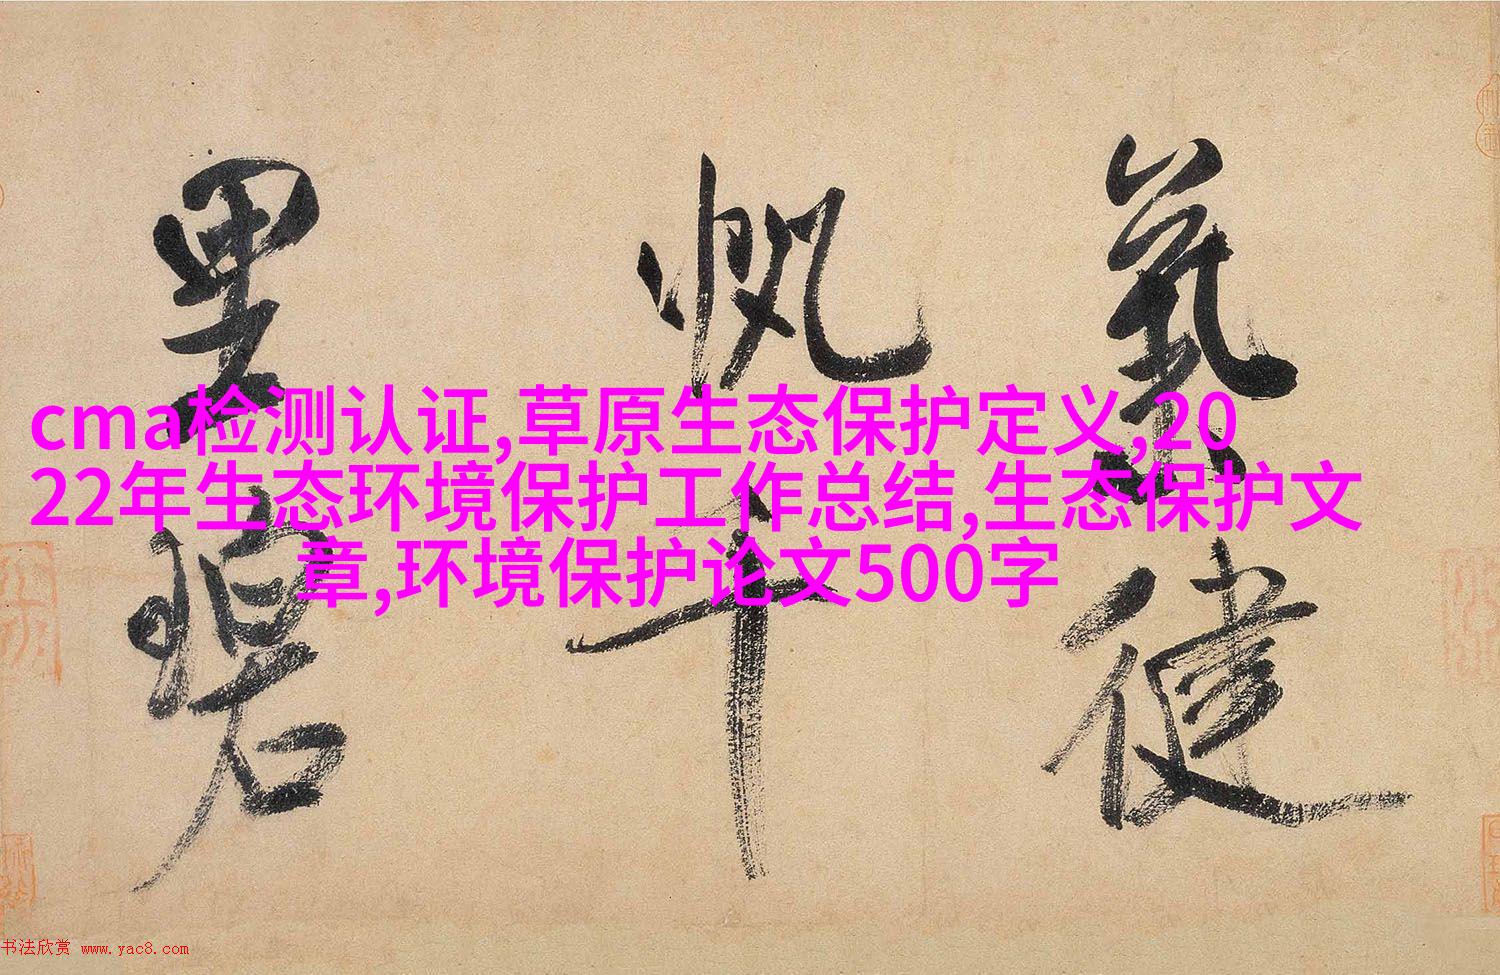 氣健
帆千
里碧
cma检测认证,草原生态保护定义,20
22年生态环境保护工作总结,生态保护文
章,环境保护论文500字
书法欣赏 www.yac8.com